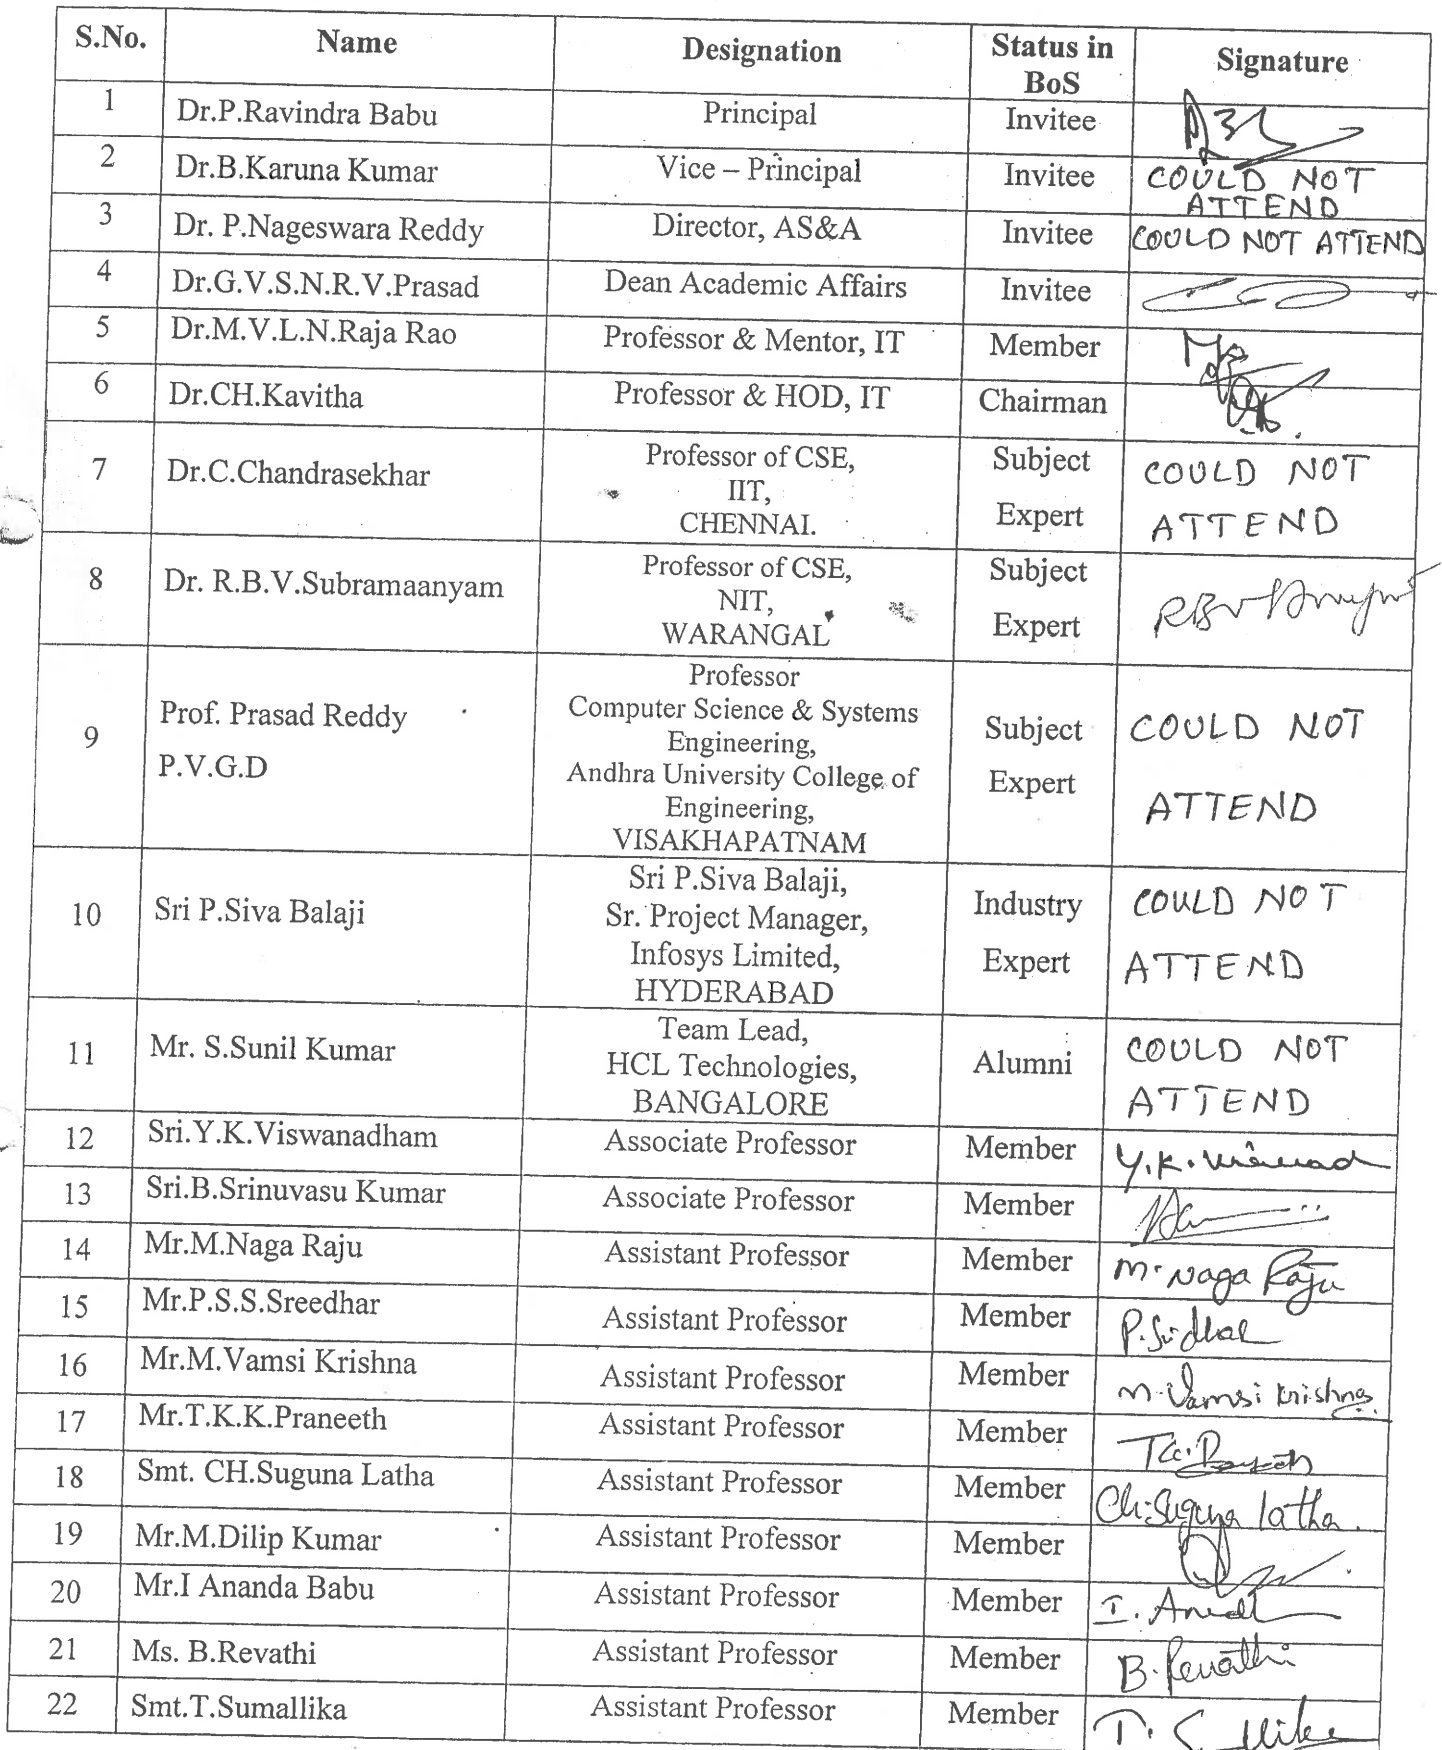 S.No. Name Designation Status in BoS Signature
1 Dr.P.Ravindra Babu Principal Invitee
2 Dr.B.Karuna Kumar Vice – Principal Invitee COULD NOT ATTEND
3 Dr. P.Nageswara Reddy Director, AS&A Invitee COULD NOT ATTEND
4 Dr.G.V.S.N.R.V.Prasad Dean Academic Affairs Invitee
5 Dr.M.V.L.N.Raja Rao Professor & Mentor, IT Member
6 Dr.CH.Kavitha Professor & HOD, IT Chairman
7 Dr.C.Chandrasekhar
Professor of CSE,
IIT,
CHENNAI.
Subject
Expert
COULD NOT
ATTEND
8 Dr. R.B.V.Subramaanyam
Professor of CSE,
NIT,
WARANGAL
Subject
Expert
9 Prof. Prasad Reddy
P.V.G.D
Professor
Computer Science & Systems
Engineering,
Andhra University College of
Engineering,
VISAKHAPATNAM
Subject
Expert
COULD NOT
ATTEND
10 Sri P.Siva Balaji
Sri P.Siva Balaji,
Sr. Project Manager,
Infosys Limited,
HYDERABAD
Industry
Expert
COULD NOT
ATTEND
11 Mr. S.Sunil Kumar
Team Lead,
HCL Technologies,
BANGALORE
Alumni
COULD NOT
ATTEND
12 Sri.Y.K.Viswanadham Associate Professor Member
13 Sri.B.Srinuvasu Kumar Associate Professor Member
14 Mr.M.Naga Raju Assistant Professor Member M. Naga Raju
15 Mr.P.S.S.Sreedhar Assistant Professor Member
16 Mr.M.Vamsi Krishna Assistant Professor Member M. Vamsi Krishna
17 Mr.T.K.K.Praneeth Assistant Professor Member
18 Smt. CH.Suguna Latha Assistant Professor Member Ch. Suguna latha.
19 Mr.M.Dilip Kumar Assistant Professor Member
20 Mr.I Ananda Babu Assistant Professor Member
21 Ms. B.Revathi Assistant Professor Member B. Revathi
22 Smt.T.Sumallika Assistant Professor Member